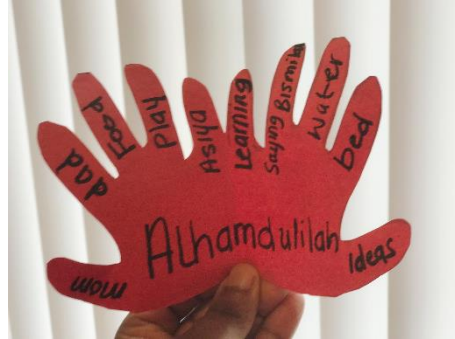 mom
dad
Food
Play
Asiya
Learning
Saying Bismila
Water
bed
Ideas
Alhamdulilah